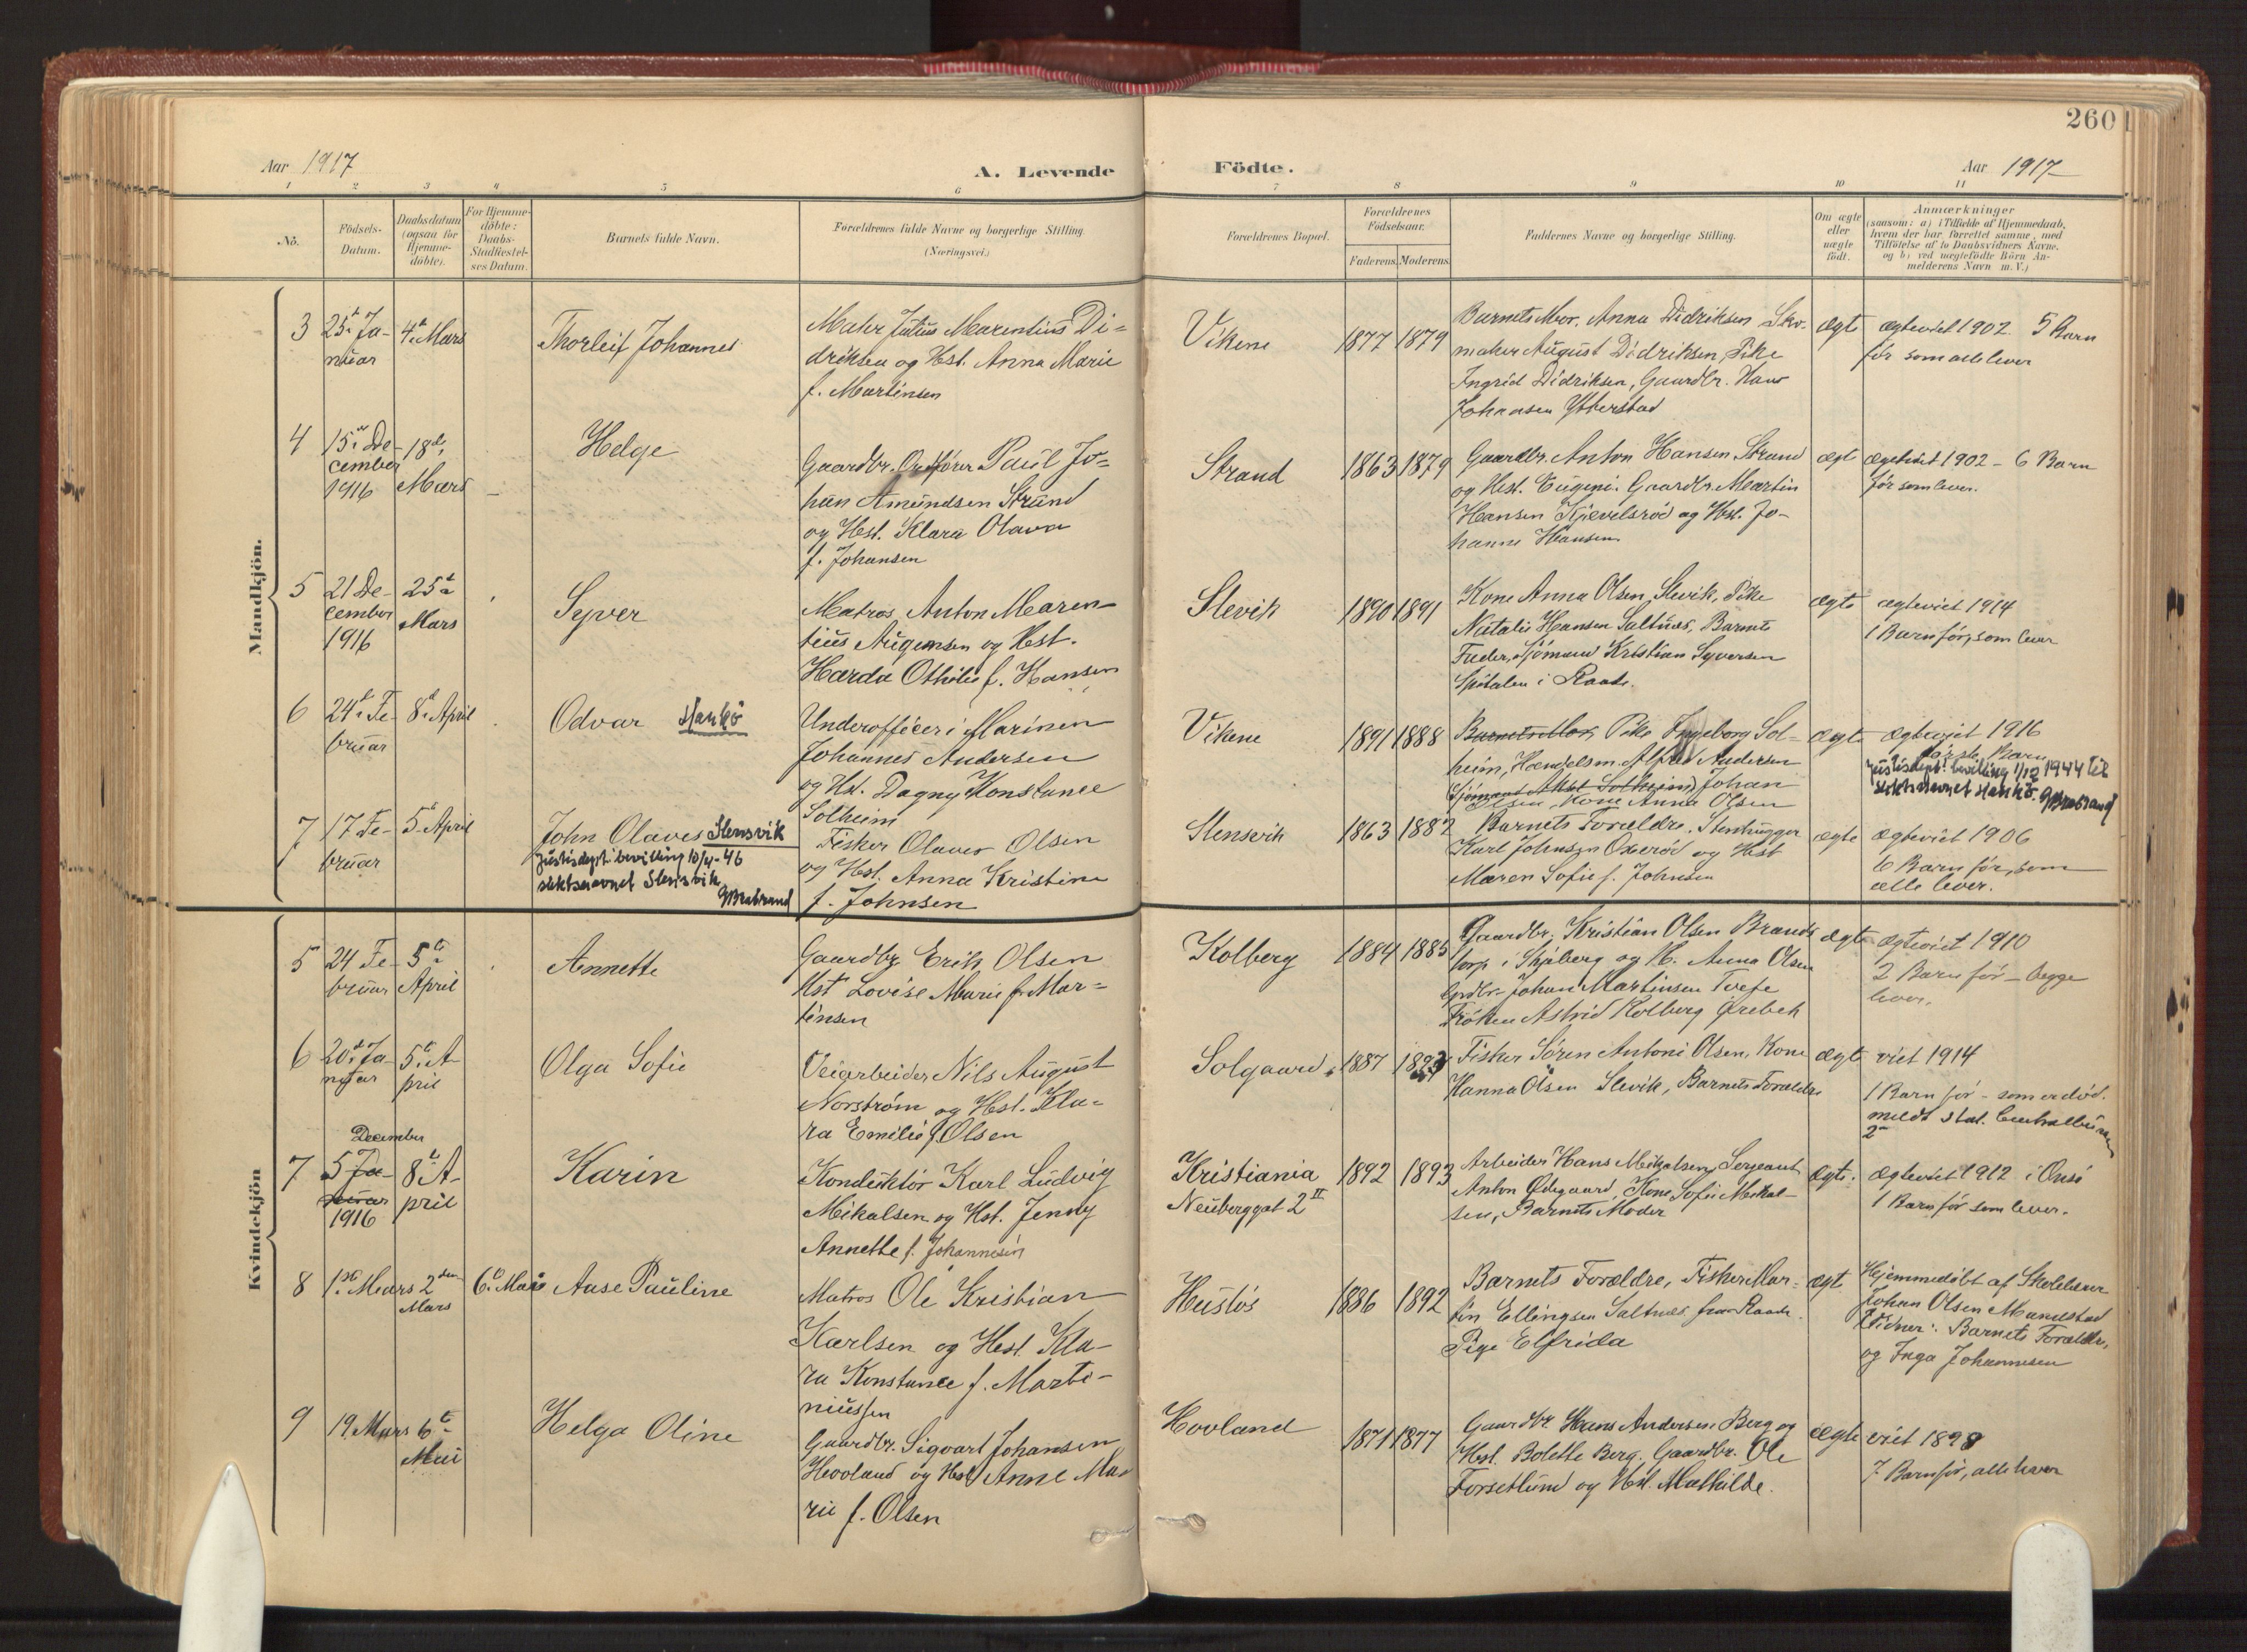 260
Aar 1917
A. Levende
Födte.
Aar 1917
1 2 3 4 5 6 7 8 9 10 11
No.
Födsels-
Datum.
Daabsdatum
(ogsaa for
Hjemme-
döbte).
For Hjemme-
döbte:
Daabs-
Stadfæstel-
ses Datum.
Barnets fulde Navn.
Forældrenes fulde Navne og borgerlige Stilling
(Næringsvei.)
Forældrenes Bopæl.
Forældrenes
Födselsaar.
Faderens. Moderens.
Faddernes Navne og borgerlige Stilling.
Om ægte
eller
uægte
födt.
Anmærkninger
(saasom: a) i Tilfælde af Hjemmedaab,
hvem der har forrettet samme, med
Tilföielse af to Daabsvidners Navne,
og b) ved uægtefödte Börn An-
melderens Navn m. V.)
Mandkjön.
3
25de Ja-
nuar
4de Mars
Thorleif Johannes
Maler Julius Marentius Di-
driksen og Hst. Anna Marie
f. Martinsen
Vikene
1877 1879
Barnets Mor, Anna Didriksen Sko-
maker August Didriksen, Pike
Ingrid Didriksen, Gaardbr. Hans
Johansen Ytterstad
ægte
ægteviet 1902 5 Barn
før som alle lever
4
15de De-
cember
1916
18de
Mars
Helge
Gaardbr. Ordfører Paul Jo-
han Amundsen Strand
og Hst. Klara Olava
f. Johansen
Strand
1863 1879
Gaardbr. Anton Hansen Strand
og Hst. Eugeni. Gaardbr. Martin
Hansen Kjevelsrød og Hst. Jo-
hanne Hansen
ægt
ægteviet 1902 - 6 Barn
før som lever.
5
21 De-
cember
1916
25de
Mars
Syver
Matros Anton Maren-
tius Augensen og Hst.
Harda Othilie f. Hansen
Slevik
1890 1891
Kone Anna Olsen, Slevik, Pike
Natalie Hansen Saltnes, Barnets
Fader, Sjömand Kristian Syversen
Spitalen i Raade.
ægte
ægteviet 1914
1 Barn før, som lever
6
24de Fe-
bruar
8de April
Odvar Hankö
Underofficer i Marinen
Johannes Andersen
og Hst. Dagny Konstance
Solheim
Vikene
1891 1888
Barnets Mor, Pike Ingeborg Sol-
heim, Handelsm. Alfred Andersen
Sjömand Solheim, Johan
Olsen, Kone Anna Olsen
ægte
ægteviet 1916
første Barn
Justisdept. bevilling 1/12 1944 til
slektsnavnet Hankö. GBrabrand
7
17 Fe-
bruar
5de April
John Olaves Slensvik
Justisdept. bevilling 10/4-46
slektsnavnet Slensvik
GBrabrand
Fisker Olaves Olsen
og Hst. Anna Kristine
f. Johnsen
Slensvik
1863 1882
Barnets Forældre. Stenhugger
Karl Johnsen Oxerød og Hst
Maren Sofie f. Johnsen
ægte
ægteviet 1906
6 Barn før, som
alle lever.
Kvindekjön
5
24 Fe-
bruar
5te
April
Annette
Gaardbr. Erik Olsen
Hst Lovise Marie f. Mar-
tinsen
Kolberg
1884 1885
Gaardbr. Kristian Olsen Brands
torp i Skjeberg og H. Anna Olsen
Grdbr. Johan Martinsen Tvete
Frøken Astrid Kolberg Ørebek
ægte
ægteviet 1910
2 Barn før - begge
lever.
6
20de Ja-
nuar
5te A-
pril
Olga Sofie
Veiarbeider Nils August
Norström og Hst. Kla-
ra Emilie f. Olsen
Solgaard
1887
Fisker Sören Antoni Olsen, Kone
Hanna Olsen Slevik, Barnets Forældre
ægt
viet 1914
1 Barn før - som er død.
meldt Stat. Centralbüraa
7
December
5 Ja-
nuar
1916
8de A-
pril
Karin
Konduktör Karl Ludvig
Mikalsen og Hst. Jenny
Annette f. Johannesen
Kristiania
Neuberggat 2 II
1892 1893
Arbeider Hans Mikalsen, Serjeant
Anton Ødegaard, Kone Sofie Mikal-
sen, Barnets Moder
ægte.
ægteviet 1912 i Onsö
1 Barn før som lever.
8
1ste Mars
2den
Mars
6te Mai
Aase Pauline
Matros Ole Kristian
Karlsen og Hst. Kla-
ra Konstance f. Marti-
niussen
Husløs
1886 1892
Barnets Forældre, Fisker Mar-
tin Ellingsen Saltnes fra Raade.
Pige Elfrida
ægte
Hjemmedöbt af Skolelærer
Johan Olsen Mandstad
Vidner: Barnets Forældre,
og Inga Johannesen
9
19 Mars
6te
Mai
Helga Oline
Gaardbr. Sigvart Johansen
Hovland og Hst. Anne Ma-
rie f. Olsen
Hovland
1871 1877
Gaardbr. Hans Andersen Berg og
Hst. Bolette Berg. Gaardbr. Ole
Forsetlund og Hst. Mathilde.
ægte
viet 1898
7 Barn før, alle lever